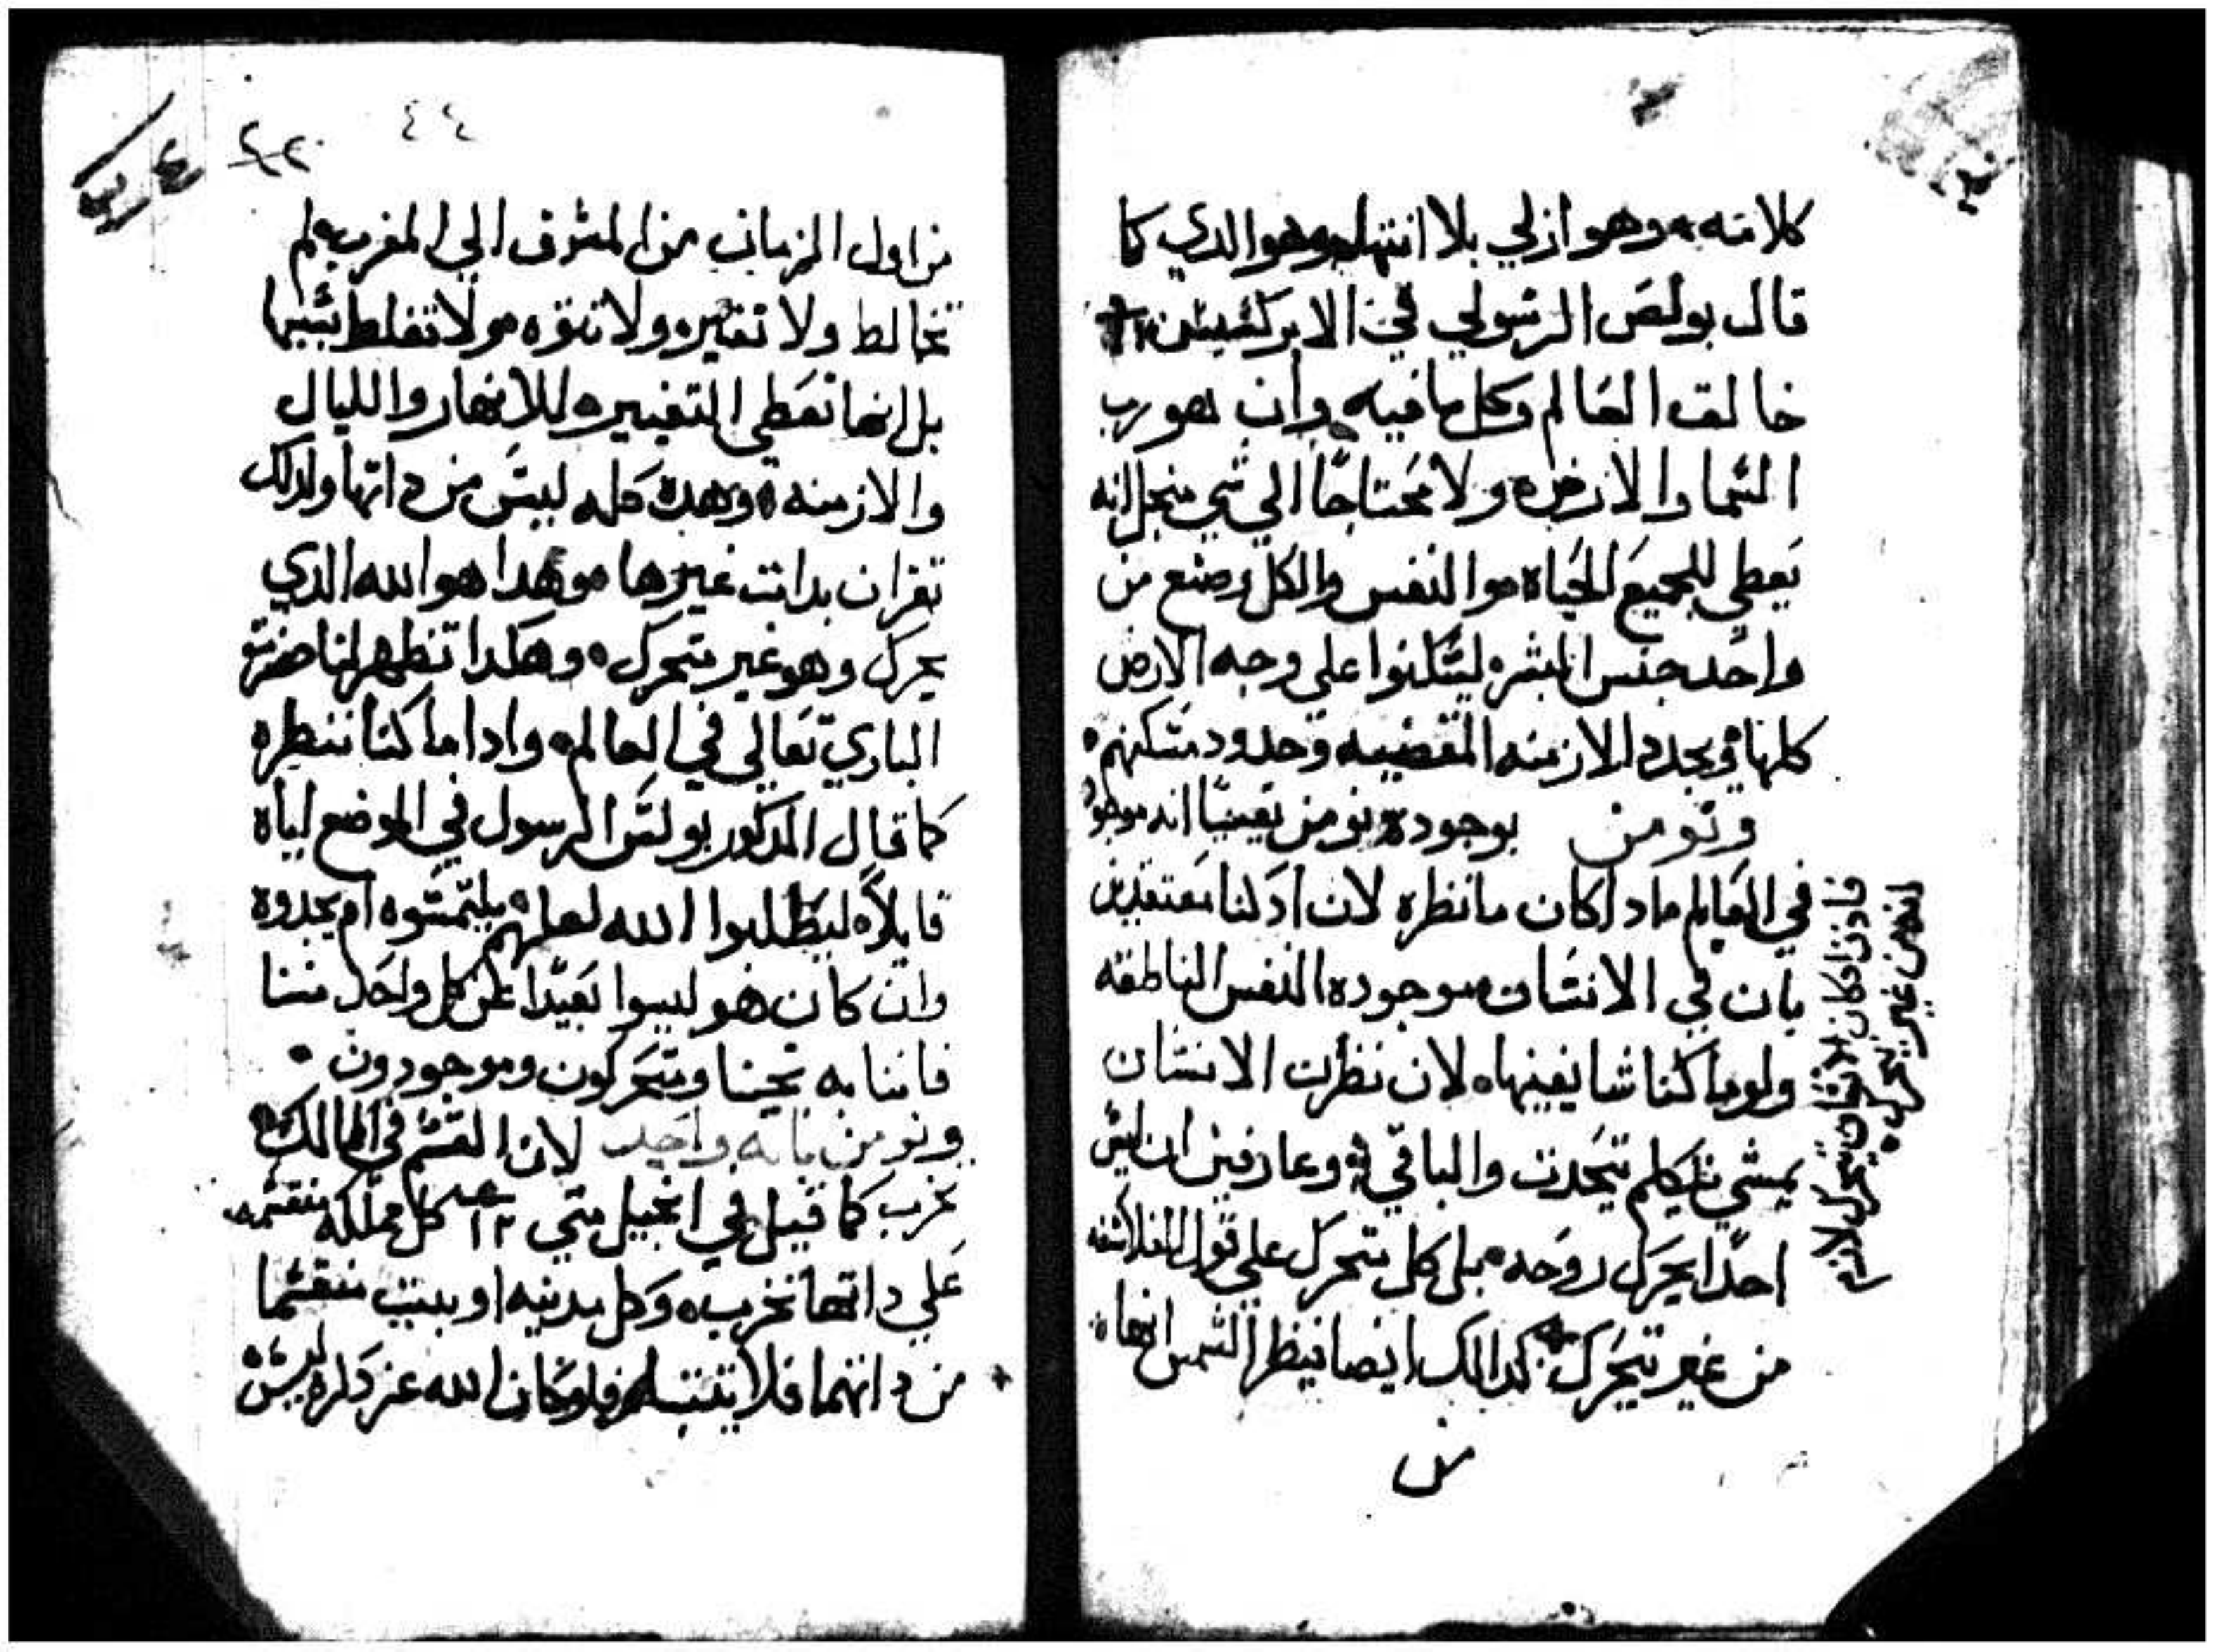 كلامنه ٠ وهو ازلي بلا انتها وهو الدي كما
قال بولص الرسولي في الابركسيس
خالق العالم وكل ما فيه وان هو رب
السما والارض ولا محتاجًا الي شي منجل انه
يعطي للجميع الحياه والنفس والكل وصنع من
واحد جنس البشر ليسكنوا علي وجه الارض
كلها ويحدد الازمنه المقضيه وحدود مسكنهم
ونومن بوجوده ونومن يقينيًا انه موجود
في العالم مادا كان ما نظره لان ادلنا معتقدين
بان في الانسان موجوده النفس الناطقه
ولو ما كنا شايفينها لان نظرت الانسان
يمشي يتكلم يتحدت والباقي وعارفين ان ليس
احدًا يحرك روحه بل كل متحرك علي قول الفلاسفه
من غير يتحرك كدالك ايضا ننظر الشمس انها
من
فادن ادا كان الانسان يتحرك لانه
من غير يتحرك
٤٤
من اول الزمان من المشرق الي المغرب لم
تخالط ولا تغيره ولا تتوه ولا تغلط بشيها
بل انها تعطي التغيير للانهار والليال
والازمنه وهده كله ليس من داتها ولدلك
تقران بدات غيرها وهدا هو الله الدي
يحرك وهو غير متحرك وهكدا تظهر لنا حضرتو
الباري تعالي في العالم وادا ما كنا ننظره
كما قال المدكور بولس الرسول في الموضع اياه
قايلاً ليطلبوا الله لعلهم يلتمسوه ام يجدوه
وان كان هو ليسوا بعيدًا عن كل واحد مننا
فاننا به نحينا ومتحركون وموجودون
ونومن بانه واحد لان القسم في الممالك
تخرب كما قيل في انجيل متي ١٢ كل مملكه منقسمه
علي داتها تخرب وكل مدينه او بيت منقسما
من داتهما فلا يتبت فلو كان الله عز دكره ليس